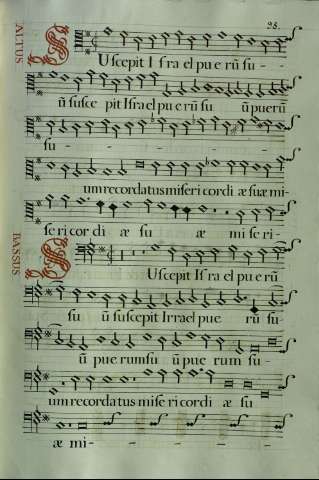 28.
ALTUS
Uscepit Israel pue rũ su-
ũ susce pit Israel pue rũ su ũ pue rũ
su- - - -
um recordatus miseri cordi æ suæ mi-
se ri cor di æ su æ mi se ri-
BASSUS
Uscepit Israel pue rũ
su ũ suscepit Isrrael pue rũ su-
ũ pue rum su ũ pue rum su-
um recordatus mise ri cordi æ su
æ mi- - - -